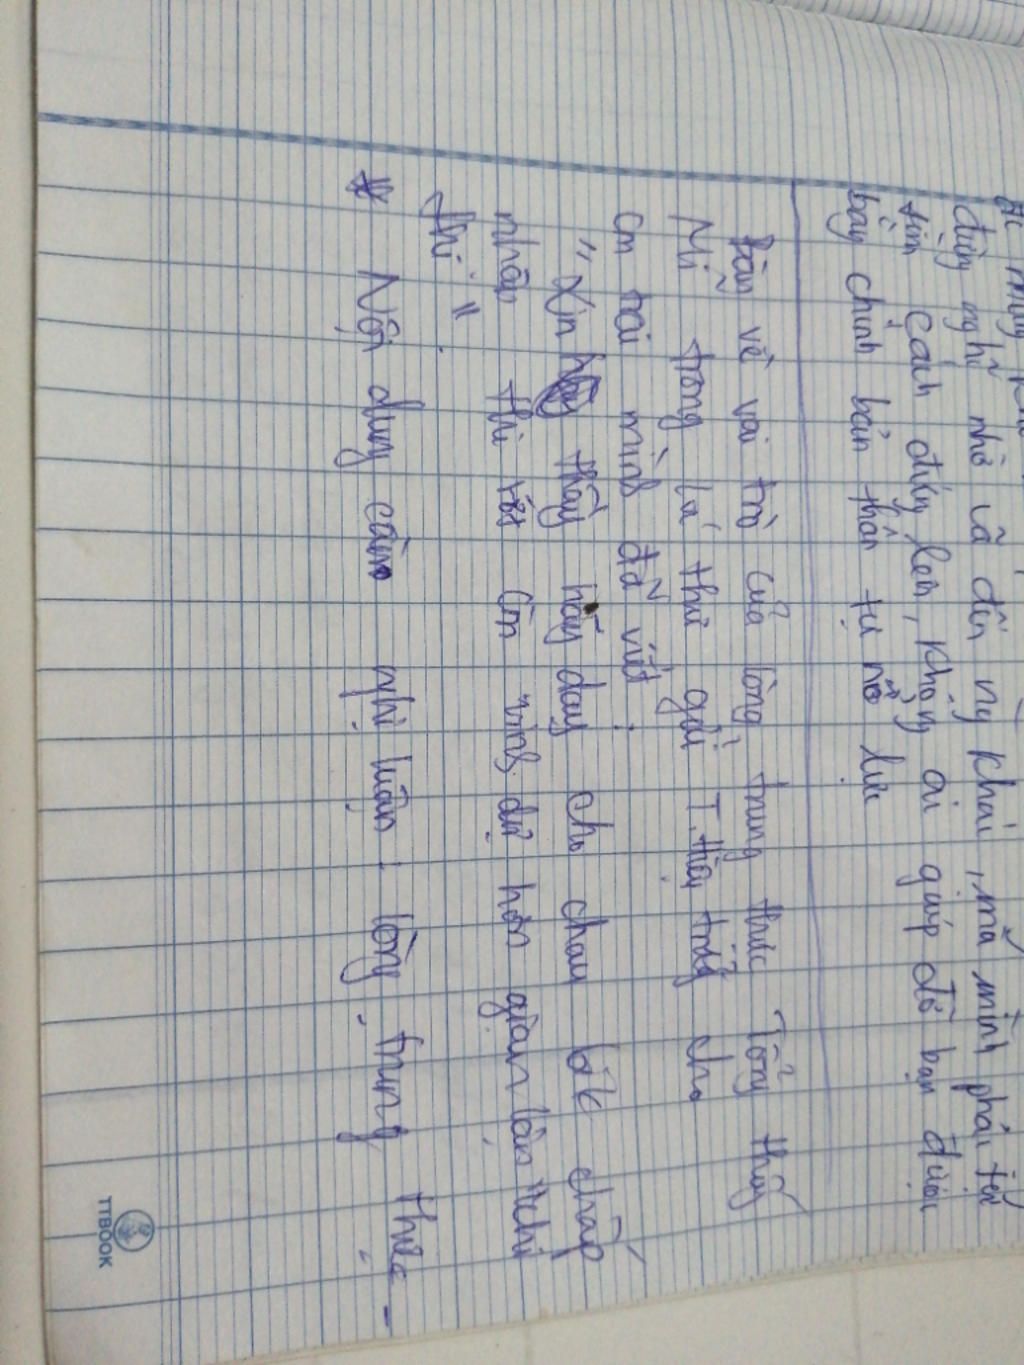 đừng nghĩ nhờ vả đến ng khác, mà mình phải tự
tìm cách đứng lên, không ai giúp đỡ bạn được
bằng chính bản thân tự nỗ lực
Bàn về vai trò của lòng trung thực Tổng thống
Mĩ trong lá thư gửi T. hiệu trưởng cho
con trai mình đã viết:
"Xin thầy hãy dạy cho cháu biết chấp
nhận thi rớt còn vinh dự hơn gian lận khi
thi".
* Nội dung cần nghị luận: lòng trung thực -
TTBOOK